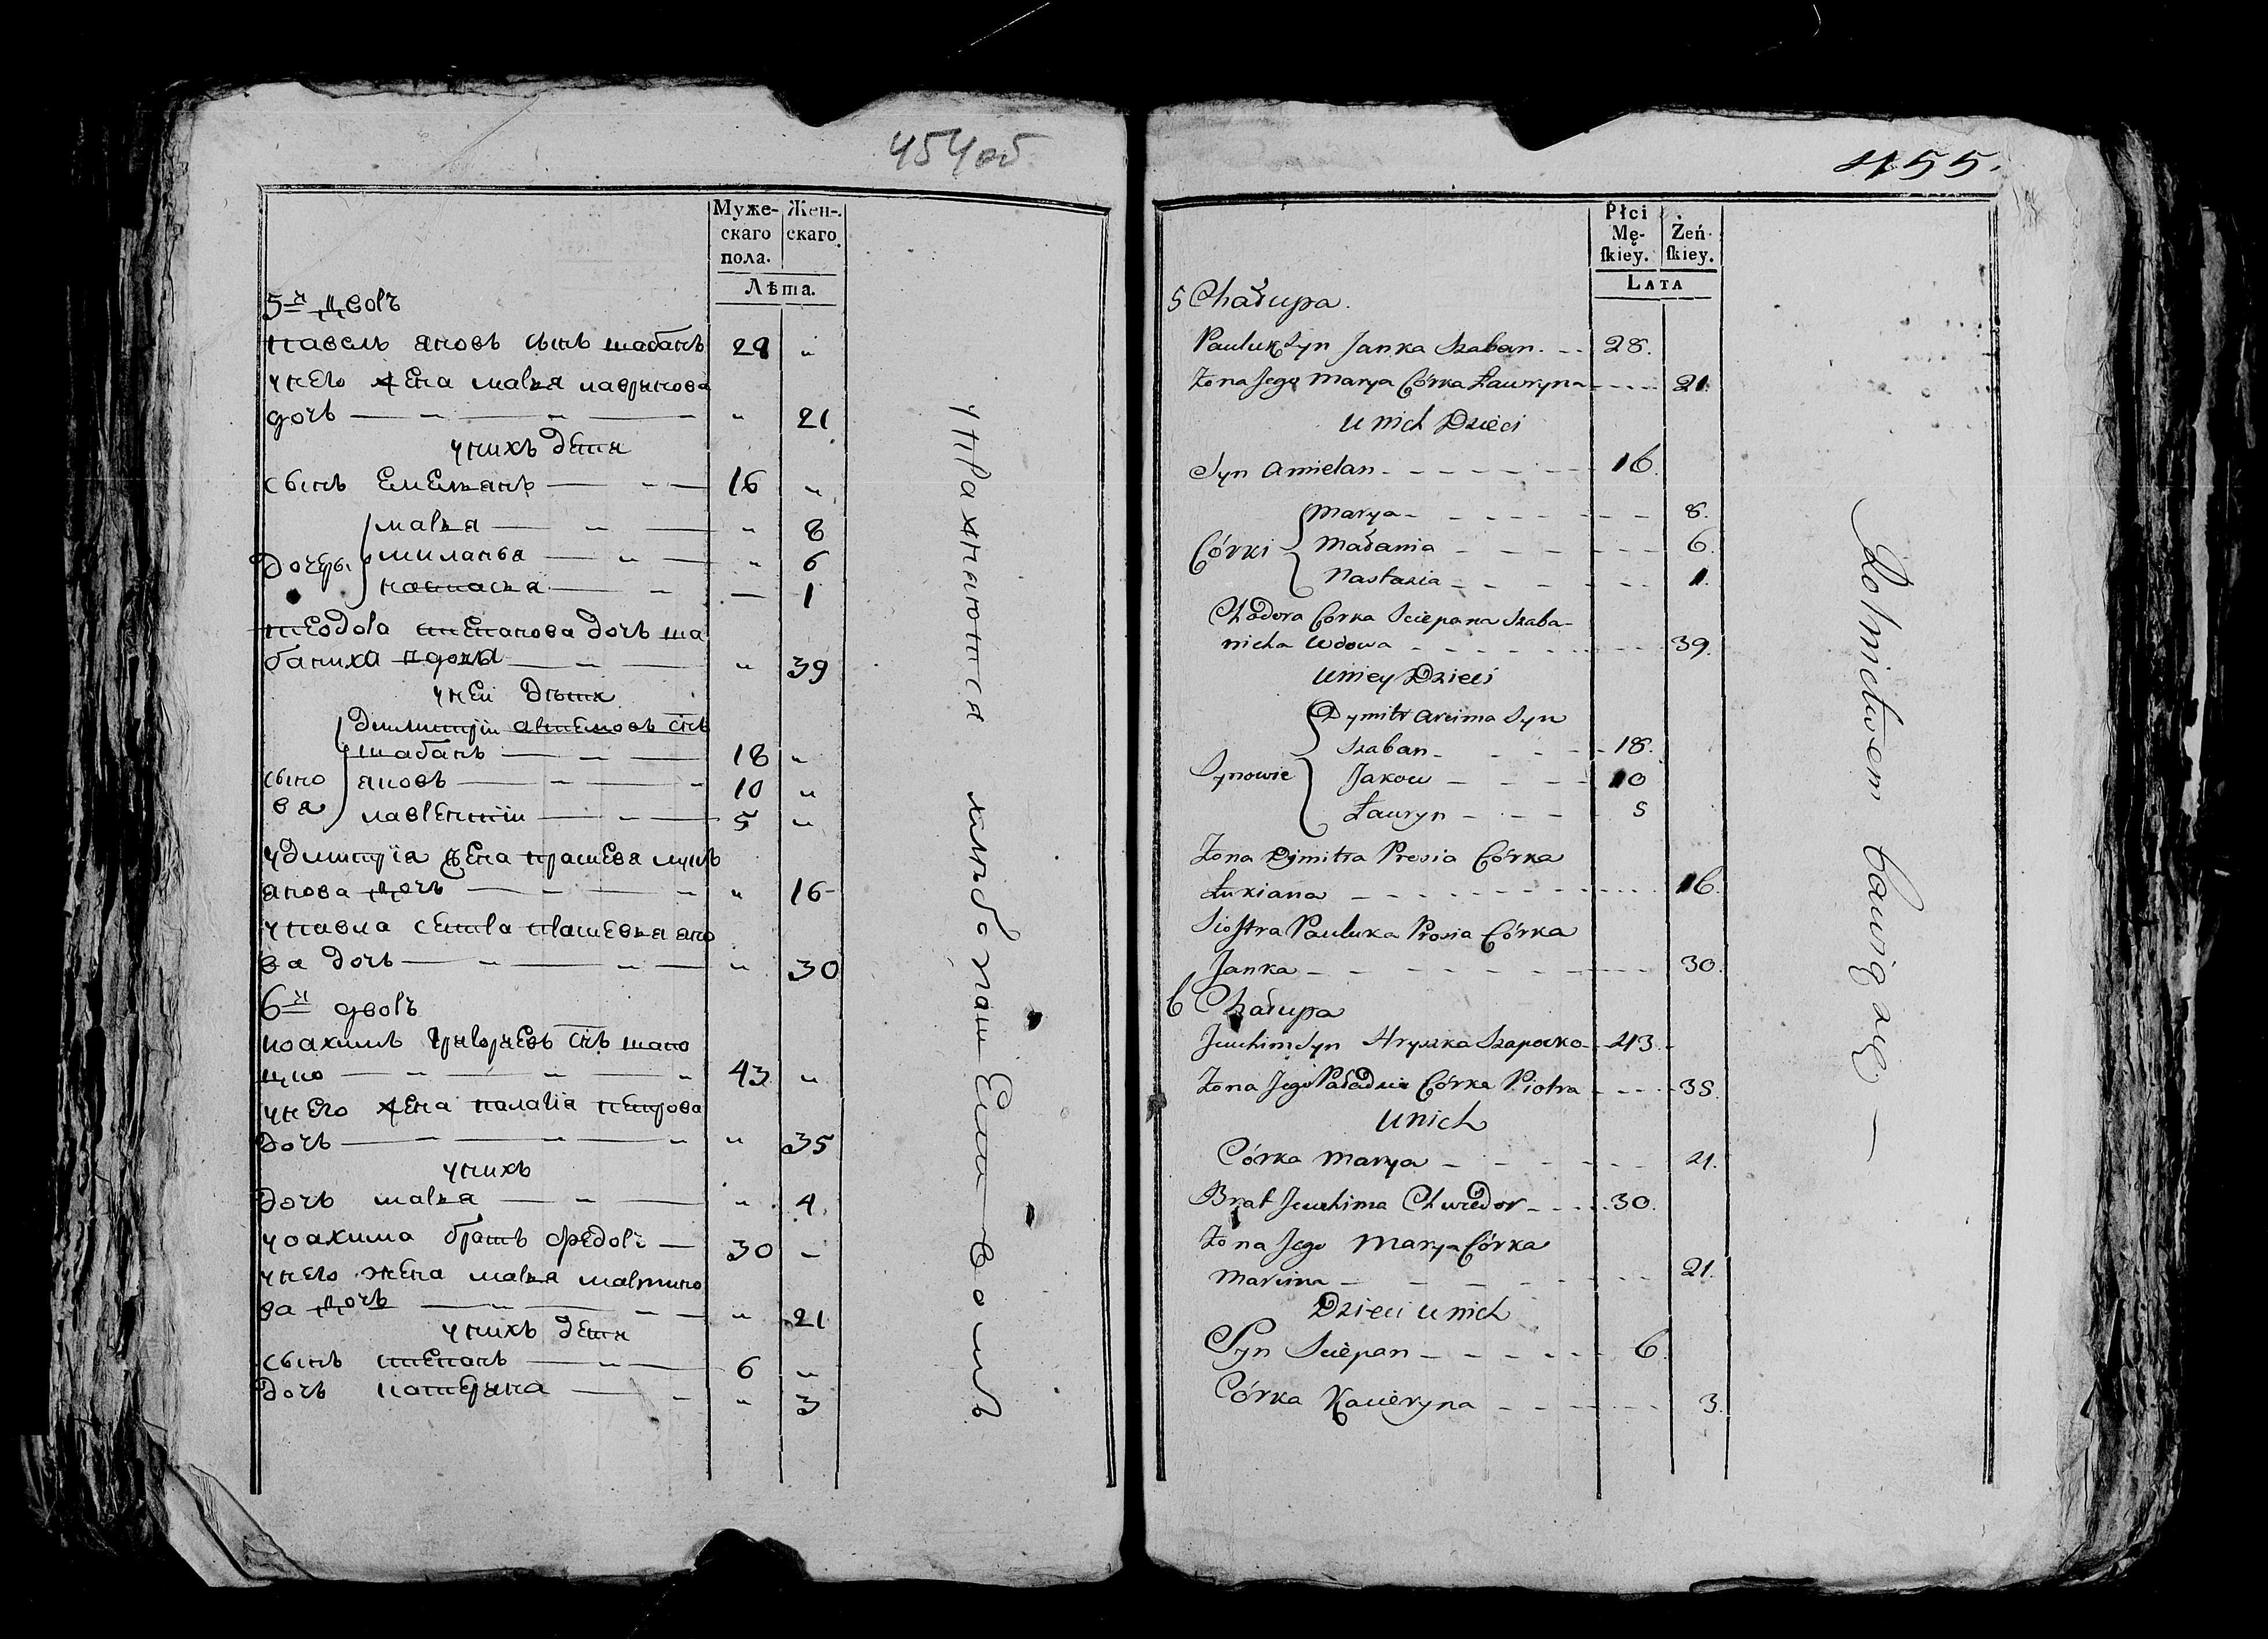 454об
Муже-
скаго
пола.
Жен-
скаго.
Лѣта.
5й дворъ
павелъ яновъ сынъ шабанъ 28 "
унего жена маръя лаврынова
дочъ — " — " — " 21
унихъ детя
сынъ Емельянъ — " — 16 "
дочеры
маръя — " — " 8
миланья — " — " 6
настасья — " — 1
теодора степанова дочъ ша
баниха вдова — " — " 39
уней дѣтя
сыно
вя
димитрiи артемовъ снъ
шабанъ — " — 18 "
яковъ — " 10 "
лаврентiи — " — 5 "
удмитрiя жена прасцевя лукъ
янова дочъ — " — " " 16
упавла сестра прасцевья яно
ва дочъ — " — " — " 30
6й дворъ
иоахимъ григорцевъ снъ шапо
цко — " — " — " 43 "
унего жена палагiя петрова
дочъ — " — " — " " 35
унихъ
дочъ маръя — " — " 4
уоахима братъ федоръ — 30 –
унего жена маръя мартыно
ва дочъ — " — " 21
унихъ детя
сынъ степанъ — " — 6 "
дочъ катерына — " " 3
упражняются хлѣбопашЕствомъ
455.
Płci
Mę-
ſkiey.
Żeń-
ſkiey.
LATA
5 Chałupa.
Pauluk Syn Janka Szaban. - - 28.
Zona Jego Marya Córka Ławryna - - - - 21.
U nich Dzieci
Syn Amielan - - - - - - - 16.
Córki
Marya - - - - - - - - 8.
Małania - - - - - - - 6.
Nastazia - - - - - - - 1.
Chodora Corka Sciepana Szaba-
nicha Wdowa - - - - - - - - 39.
Uniey Dzieci
Synowie
Dymitr Arcima Syn
Szaban - - - - - 18.
Jakow - - - - 10
Ławryn - - - - 5
Zona Dymitra Prosia Córka
Łukiana - - - - - - - - - - 16.
Siostra Pauluka Prosia Córka
Janka - - - - - - - - - - 30.
6 Chałupa
Jauchim Syn Hryszka Szapocko - - 43.
Zona Jego Paładzia Córka Piotra - - - - 35.
Unich
Córka Marya - - - - - - 4.
Brat Jauchima Chwiedor - - - 30.
Zona Jego Marya Córka
Marcina - - - - - - - - 21.
Dzieci u nich
Syn Sciepan - - - - - - 6.
Córka Kacieryna - - - - - - 3.
Rolnictwem bawią się —